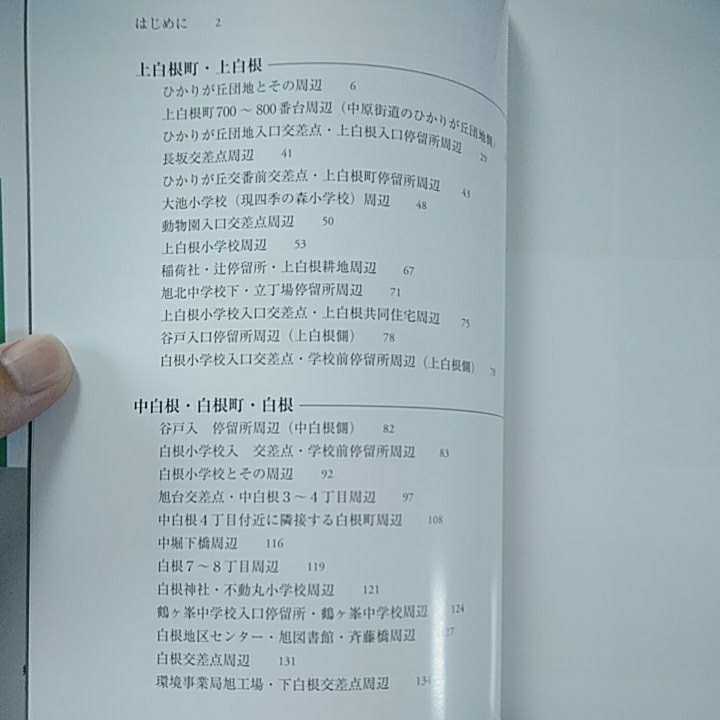 はじめに 2
上白根町・上白根
ひかりが丘団地とその周辺 6
上白根町700～800番台周辺（中原街道のひかりが丘団地側）
ひかりが丘団地入口交差点・上白根入口停留所周辺 29
長坂交差点周辺 41
ひかりが丘交番前交差点・上白根町停留所周辺 43
大池小学校（現四季の森小学校）周辺 48
動物園入口交差点周辺 50
上白根小学校周辺 53
稲荷社・辻停留所・上白根耕地周辺 67
旭北中学校下・立丁場停留所周辺 71
上白根小学校入口交差点・上白根共同住宅周辺 75
谷戸入口停留所周辺（上白根側） 78
白根小学校入口交差点・学校前停留所周辺（上白根側）
中白根・白根町・白根
谷戸入 停留所周辺（中白根側） 82
白根小学校入 交差点・学校前停留所周辺 83
白根小学校とその周辺 92
旭台交差点・中白根3～4丁目周辺 97
中白根4丁目付近に隣接する白根町周辺 108
中堀下橋周辺 116
白根7～8丁目周辺 119
白根神社・不動丸小学校周辺 121
鶴ヶ峯中学校入口停留所・鶴ヶ峯中学校周辺 124
白根地区センター・旭図書館・斉藤橋周辺 127
白根交差点周辺 131
環境事業局旭工場・下白根交差点周辺 134